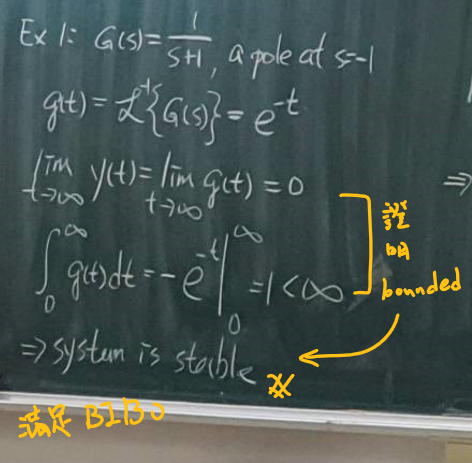 Ex 1: G(s) = 1/(s+1), a pole at s=-1
g(t) = ℒ⁻¹{G(s)} = e^-t
lim t→∞ y(t) = lim t→∞ g(t) = 0
∫₀^∞ g(t)dt = -e^-t |₀^∞ = 1 < ∞
證
明
bounded
⇒ system is stable ※
滿足 BIBO
⇒